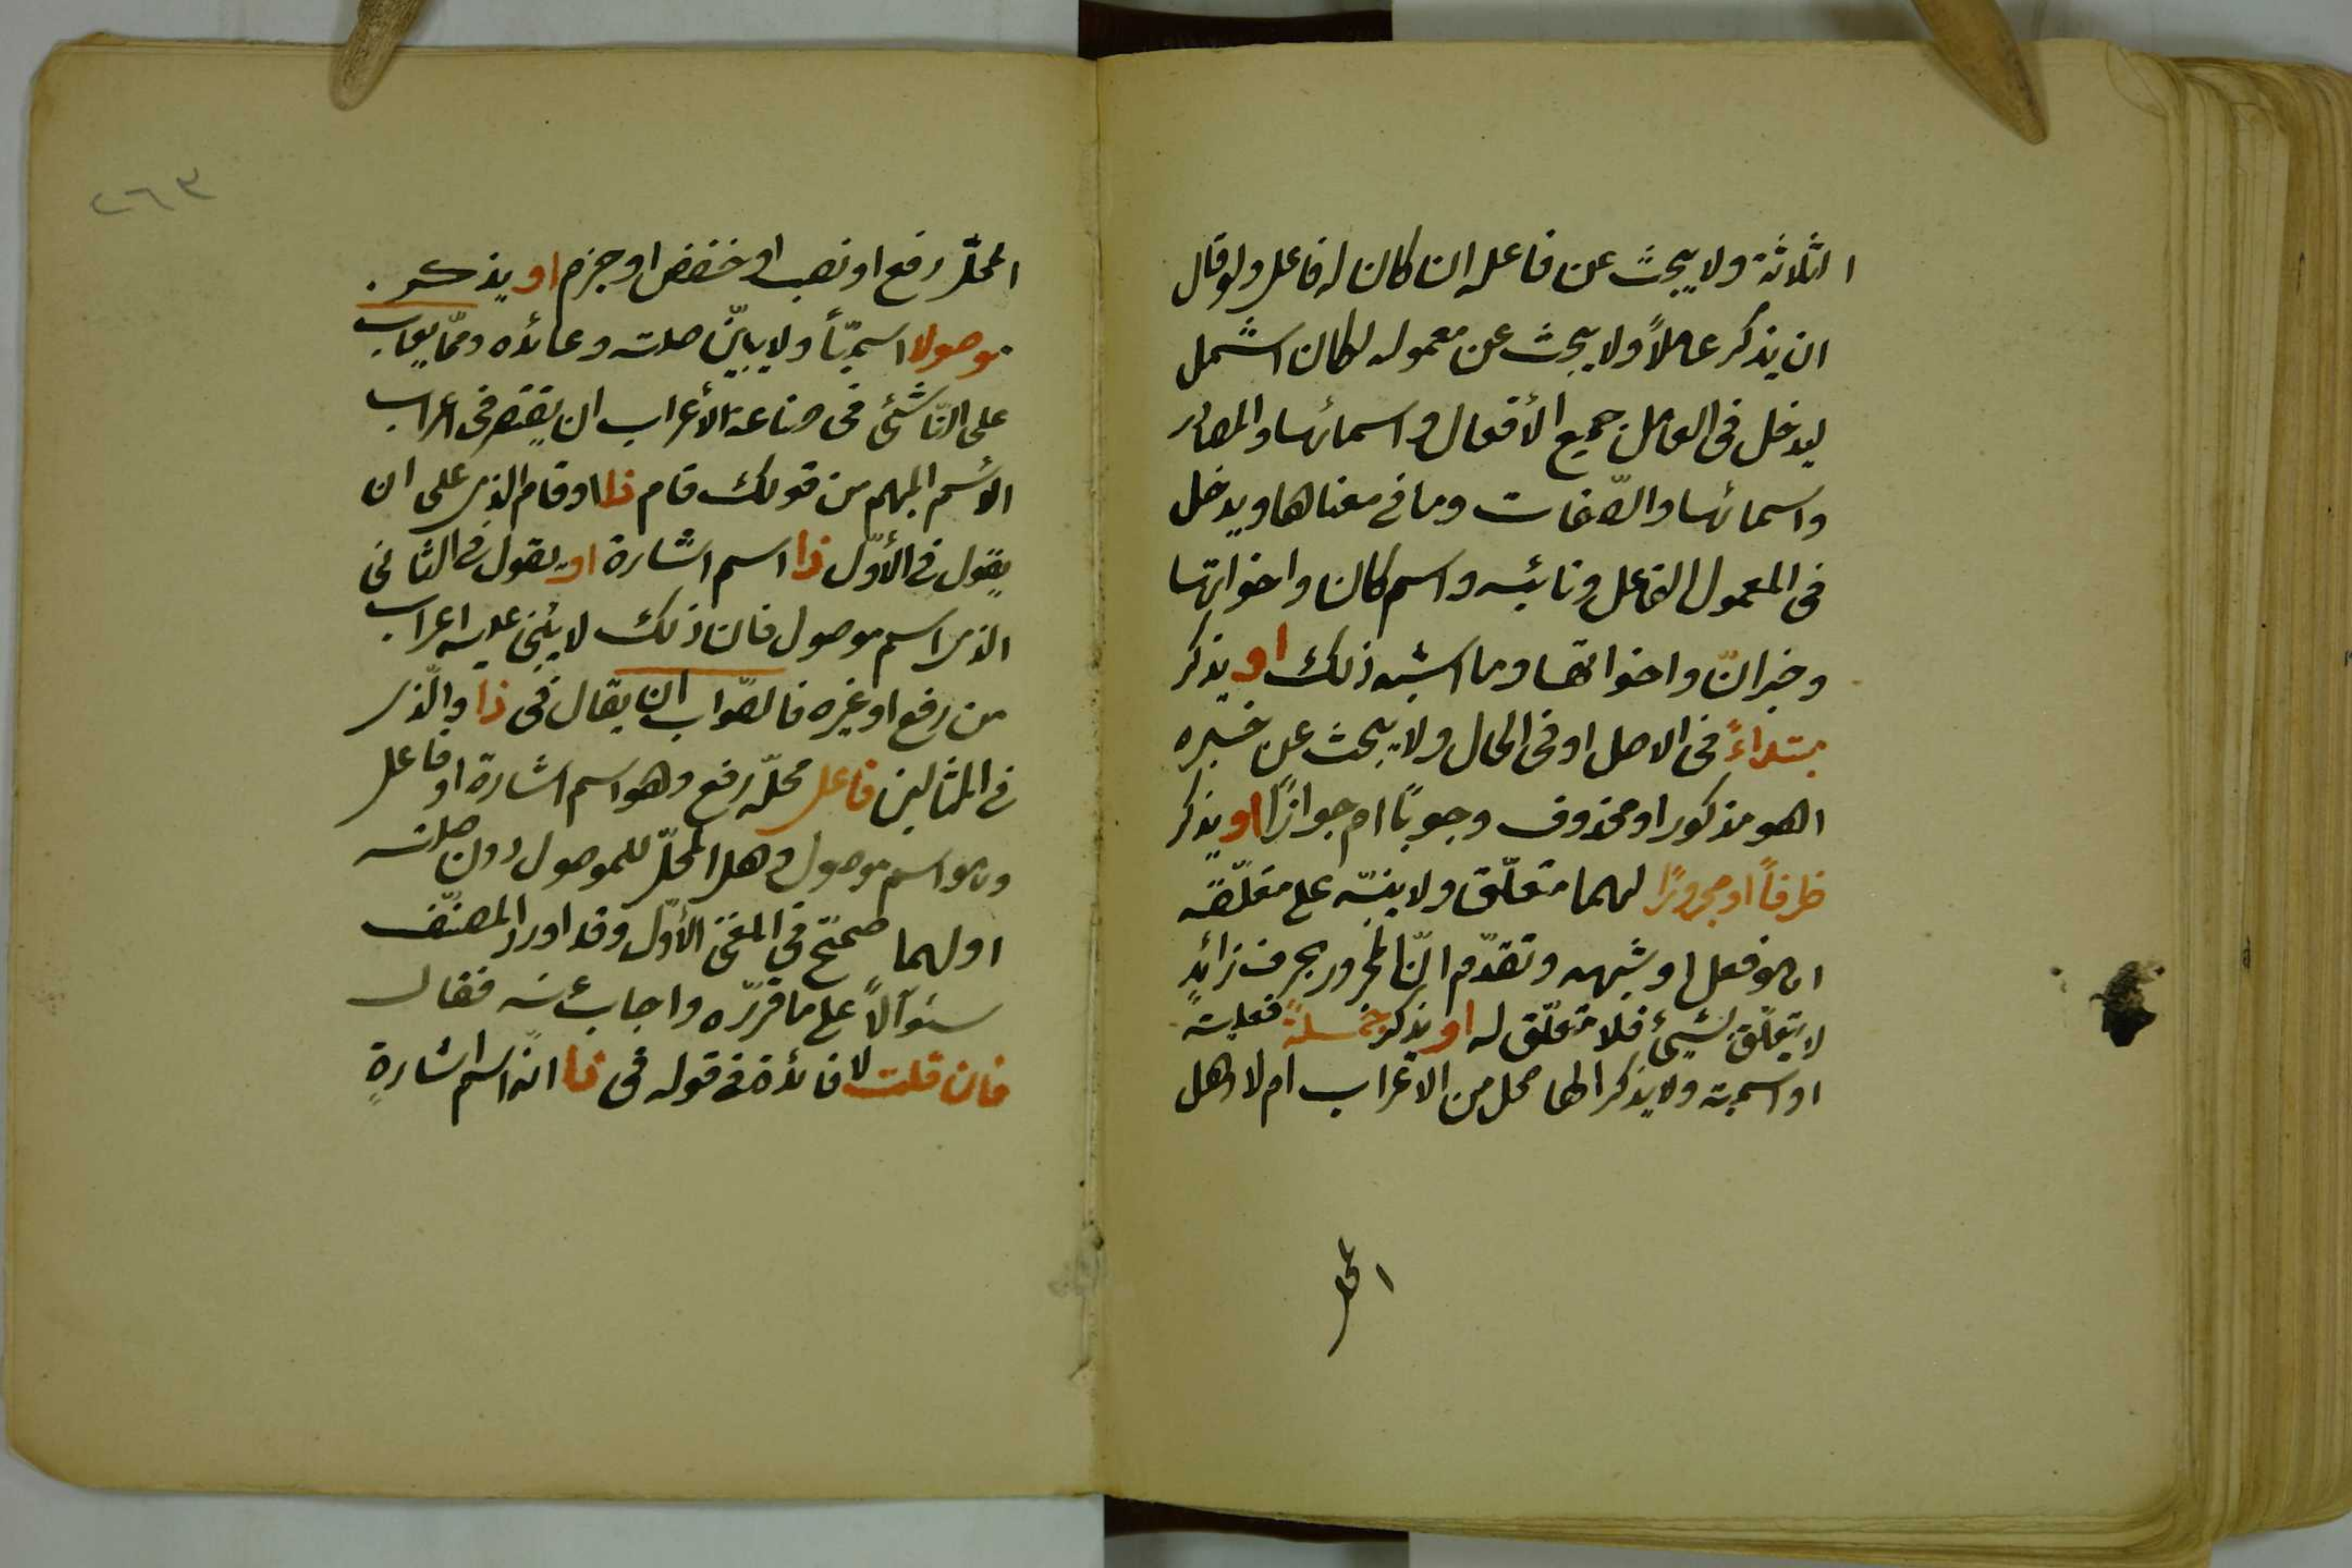 الثلاثة ولا يبحث عن فاعله ان كان له فاعل ولو قال
ان يذكر عاملاً ولا يبحث عن معموله لكان اشمل
ليدخل فى العامل جميع الأفعال و اسمائها والمصادر
واسمائها والصّفات وما فى معناها ويدخل
فى المعمول الفاعل ونائبه واسم كان واخواتها
وخبر انّ واخواتها وما اشبه ذلك او يذكر
مبتداءً فى الاصل او فى الحال ولا يبحث عن خبره
اهو مذكور او محذوف وجوبًا ام جوازًا او يذكر
ظرفاً او مجرورًا لهما متعلّق ولا ينبّه على متعلّقه
اهو فعل او شبهه وتقدّم انّ المجرور بحرف زائدٍ
لا يتعلّق بشيئ فلا متعلّق له او يذكر جملةً فعليته
او اسميته ولا يذكر الها محل من الاعراب ام لا وهل
المحل
٢٦٣
المحلّ رفع او نصب او خفض او جزم او يذكر
موصولا اسميّاً ولا يبيّن صلته وعائده وممّا يعاب
على النّاشئ فى صناعة الأعراب ان يقتصر فى اعراب
الأسم المبهم من قولك قام ذا او قام الذى على ان
يقول فى الأوّل ذا اسم اشارة او يقول فى الثانى
الذى اسم موصول فان ذلك لا يبنى عليه اعراب
من رفع او غيره فالصّواب ان يقال فى ذا والّذى
فى المثالين فاعل محلّه رفع وهو اسم اشارة او فاعل
وهو اسم موصول وهل المحلّ للموصول دون صلته
او لهما صحّح فى المغنى الأوّل وقد اورد المصنّف
سئوآلاً على ما قرّره واجاب عنه فقال
فان قلت لا فائدة فى قوله فى ذا انّه اسم اشارةٍ